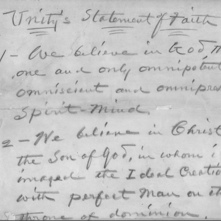 Unity's Statement of Faith
1 - We believe in God,
one and only omnipotent
omniscient and omnipres
Spirit-Mind.
2 - We believe in Christ
the Son of God, in whom i
imaged the Ideal Creatio
with perfect Man on th
throne of dominion